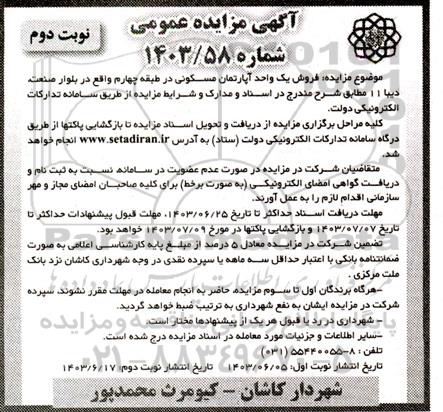 آگهی مزایده عمومی
شماره ۱۴۰۳/۵۸
نوبت دوم
موضوع مزایده: فروش یک واحد آپارتمان مسکونی در طبقه چهارم واقع در بلوار صنعت،
دیبا ۱۱ مطابق شرح مندرج در اسناد و مدارک و شرایط مزایده از طریق سامانه تدارکات
الکترونیکی دولت.
کلیه مراحل برگزاری مزایده از دریافت و تحویل اسناد مزایده تا بازگشایی پاکتها از طریق
درگاه سامانه تدارکات الکترونیکی دولت (ستاد) به آدرس www.setadiran.ir انجام خواهد
شد.
متقاضیان شرکت در مزایده در صورت عدم عضویت در سامانه، نسبت به ثبت نام و
دریافت گواهی امضای الکترونیکی (به صورت برخط) برای کلیه صاحبان امضای مجاز و مهر
سازمانی اقدام لازم را به عمل آورند.
مهلت دریافت اسناد حداکثر تا تاریخ ۱۴۰۳/۰۶/۲۵، مهلت قبول پیشنهادات حداکثر تا
تاریخ ۱۴۰۳/۰۷/۰۷ و بازگشایی پاکتها در مورخ ۱۴۰۳/۰۷/۰۹ خواهد بود.
تضمین شرکت در مزایده معادل ۵ درصد از مبلغ پایه کارشناسی اعلامی به صورت
ضمانتنامه بانکی با اعتبار حداقل سه ماهه یا سپرده نقدی در وجه شهرداری کاشان نزد بانک
ملت مرکزی .
-هرگاه برندگان اول تا سوم مزایده، حاضر به انجام معامله در مهلت مقرر نشوند، سپرده
شرکت در مزایده ایشان به نفع شهرداری به ترتیب ضبط خواهد گردید.
- شهرداری در رد یا قبول هر یک از پیشنهادها مختار است.
-سایر اطلاعات و جزئیات مورد معامله در اسناد مزایده درج شده است.
تلفن : ۸-۵۵۴۴۰۰۵۵ (۰۳۱)
تاریخ انتشار نوبت اول: ۱۴۰۳/۰۶/۰۵ تاریخ انتشار نوبت دوم: ۱۴۰۳/۶/۱۷
شهردار کاشان - کیومرث محمدپور